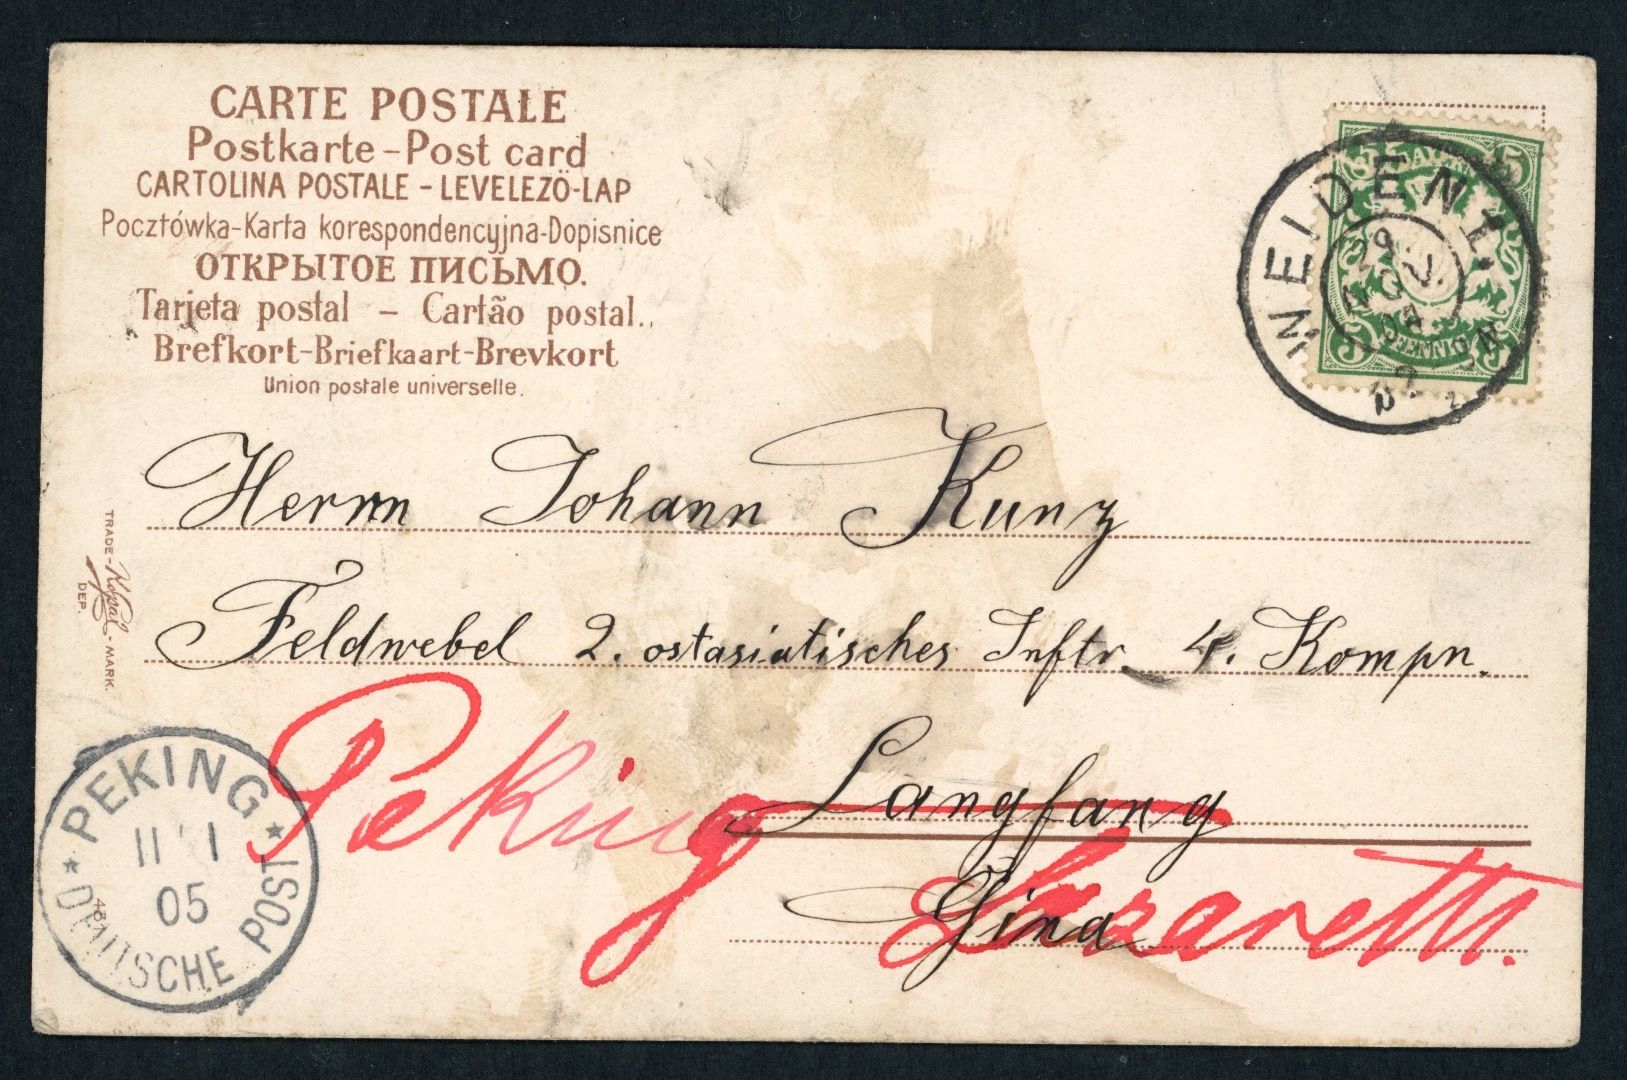 CARTE POSTALE
Postkarte-Post card
CARTOLINA POSTALE - LEVELEZÖ-LAP
Pocztówka-Karta korespondencyjna-Dopisnice
ОТКРЫТОЕ ПИСЬМО.
Tarjeta postal – Cartão postal.
Brefkort-Briefkaart-Brevkort
Union postale universelle.
WEIDEN 1.
5
5
PFENNIG
Herrn Johann Kunz
Feldwebel 2. ostasiatisches Inftr. 4. Kompn.
TRADE-MARK.
DEP.
Langfang
Peking
Lazarett.
PEKING
11 1
05
DEUTSCHE POST